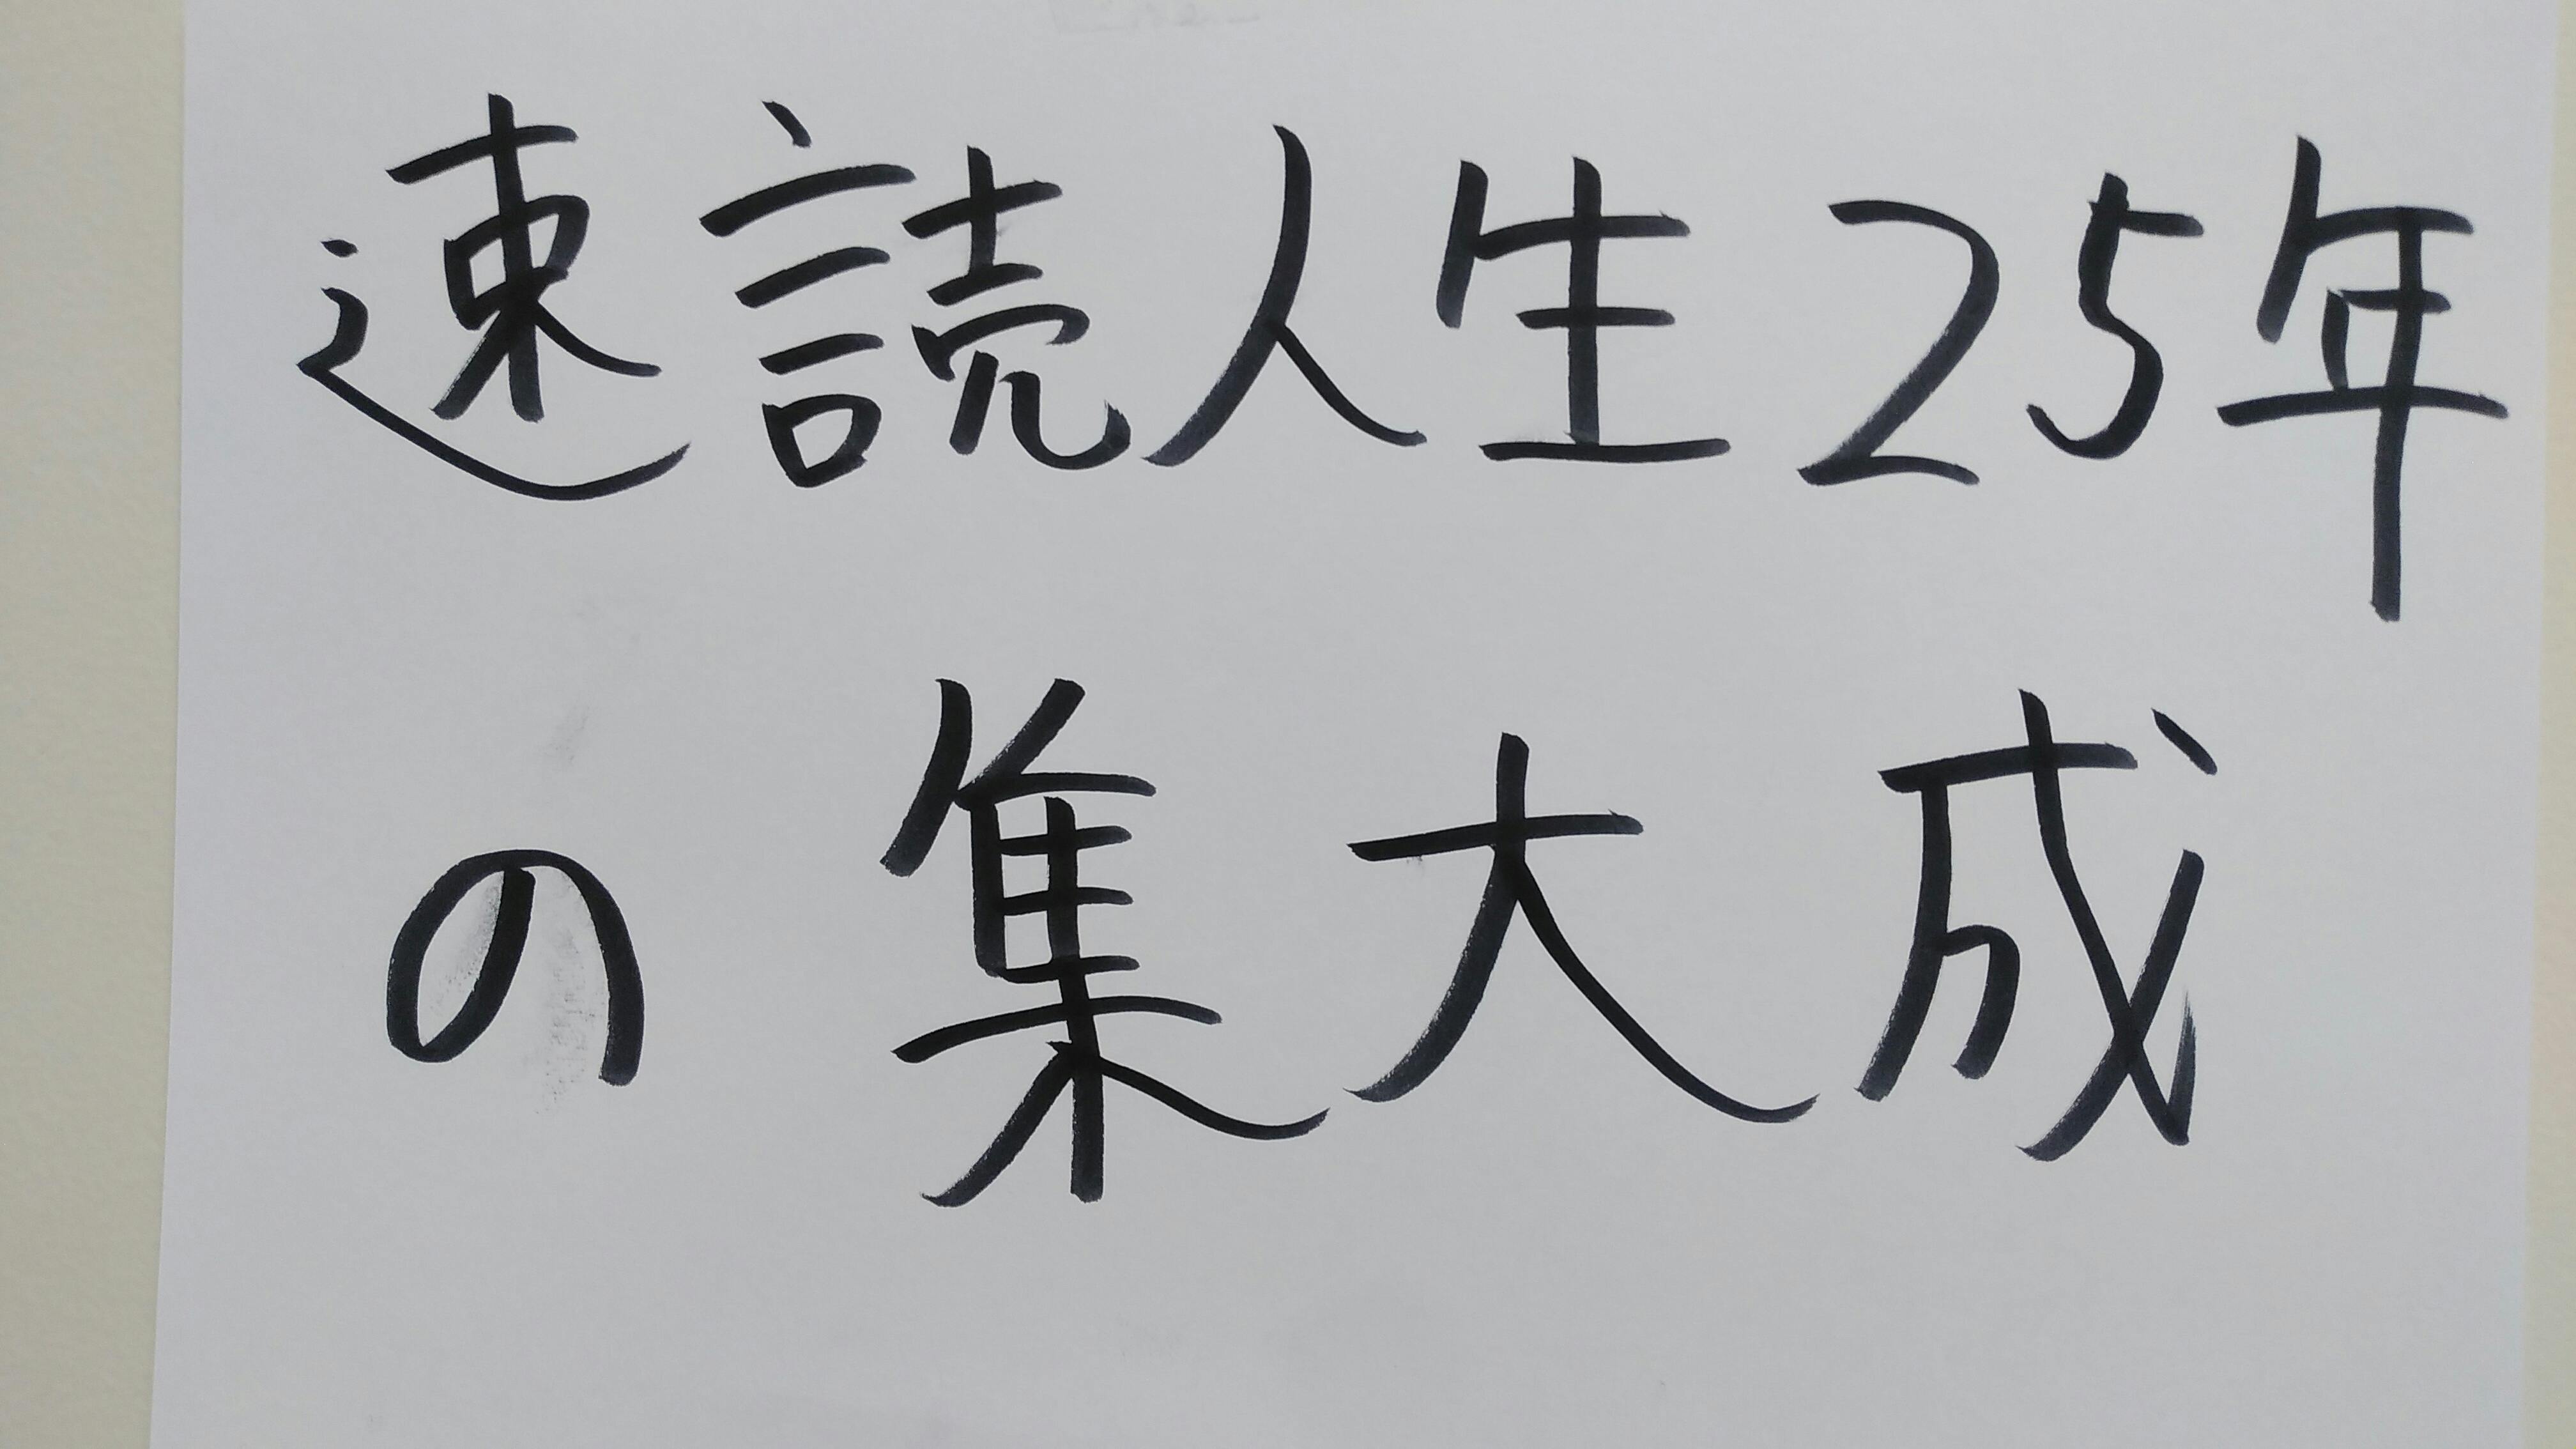 速読人生25年
の集大成